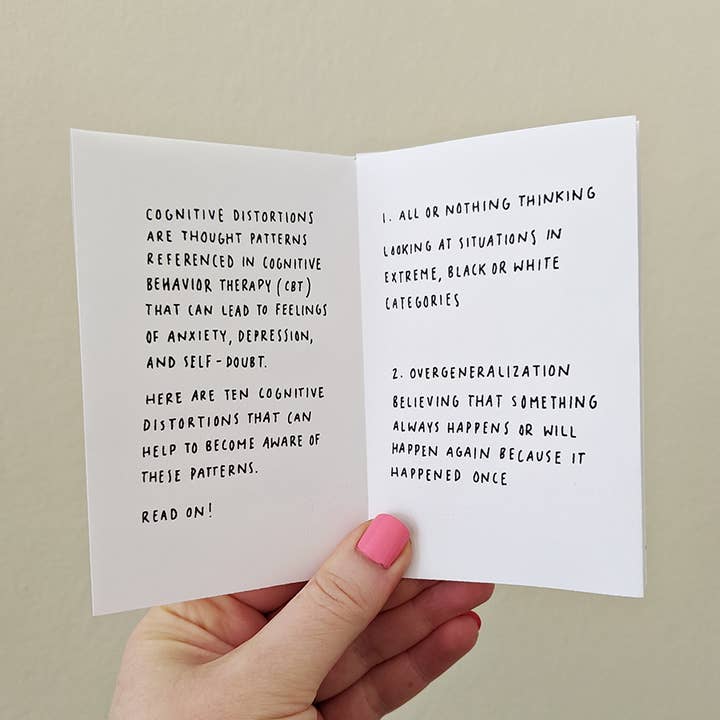 COGNITIVE DISTORTIONS
ARE THOUGHT PATTERNS
REFERENCED IN COGNITIVE
BEHAVIOR THERAPY (CBT)
THAT CAN LEAD TO FEELINGS
OF ANXIETY, DEPRESSION,
AND SELF-DOUBT.
HERE ARE TEN COGNITIVE
DISTORTIONS THAT CAN
HELP TO BECOME AWARE OF
THESE PATTERNS.
READ ON!
1. ALL OR NOTHING THINKING
LOOKING AT SITUATIONS IN
EXTREME, BLACK OR WHITE
CATEGORIES
2. OVERGENERALIZATION
BELIEVING THAT SOMETHING
ALWAYS HAPPENS OR WILL
HAPPEN AGAIN BECAUSE IT
HAPPENED ONCE